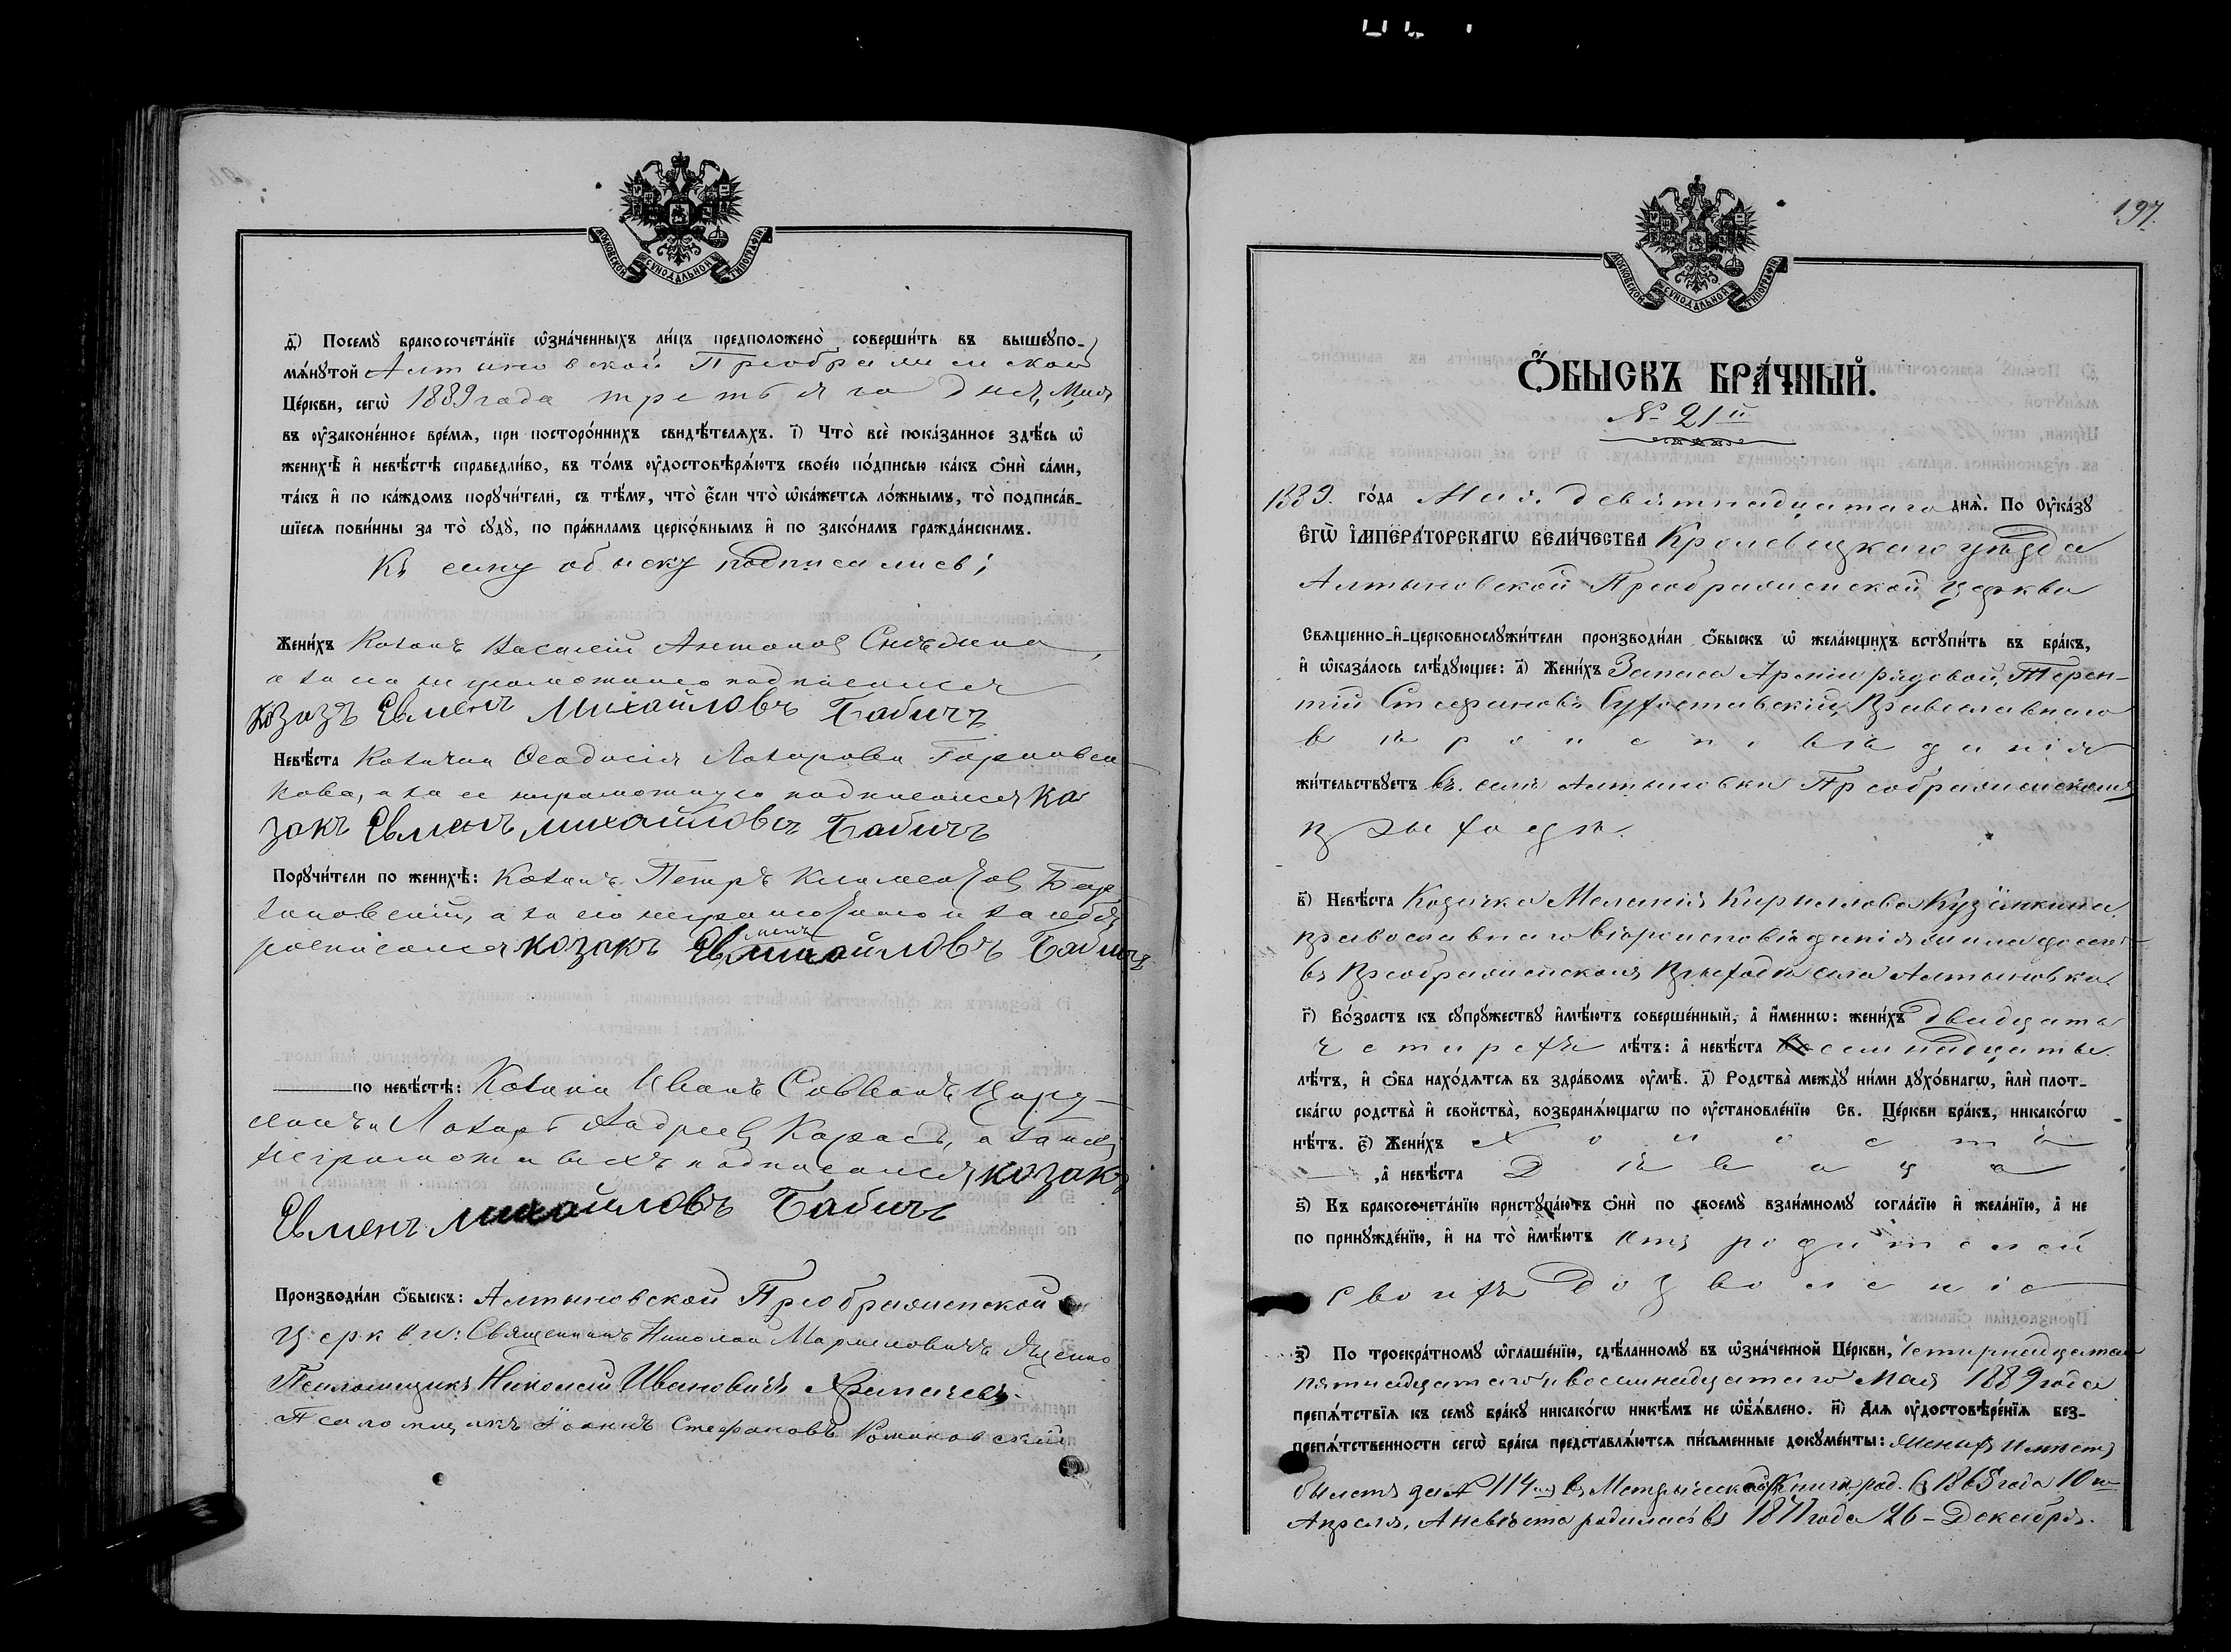 МОСКОВСКОЙ СѴНОДАЛЬНОЙ ТИПОГРАФІИ
д҃) Посемꙋ̀ бракосочета́нїе ѡ҆зна́ченныхъ ли́цъ предположено̀ соверши́ть въ вышеꙋпо-
мѧ́нꙋтой Алтыновской Преображенской
Це́ркви, сегѡ̀ 1889 года третьяго дня, Мая
въ ᲂу҆зако́ненное вре́мѧ, при посторо́ннихъ свидѣ́телѧхъ. і҃) Что̀ всѐ пока́занное здѣ́сь ѡ҆
женихѣ̀ и҆ невѣ́стѣ справедли́во, въ то́мъ ᲂу҆достовѣрѧ́ютъ свое́ю по́дписью ка́къ ѻ҆нѝ са́ми,
та́къ и҆ по ка́ждомъ порꙋчи́тели, съ тѣ́мъ, что̀ є҆́сли что̀ ѡ҆ка́жетсѧ ло́жнымъ, то̀ подписа́в-
шїесѧ пови́нны за то̀ сꙋдꙋ̀, по пра́виламъ церко́внымъ и҆ по зако́намъ гражда́нскимъ.
Къ сему обыску подписались:
Жени́хъ Козакъ Василій Антоновъ
а за него неграмотнаго подписался
козакъ Евменъ Михайловъ Бабичъ
Невѣ́ста Козачка Ѳеодосія Лазарева
кова, а за ее неграмотную подписался ка
закъ Евменъ Михайловъ Бабичъ
Порꙋчи́тели по женихѣ̀: Козакъ Петръ
а за его неграмотнаго и за себя
росписался козакъ Евменъ Михайловъ Бабичъ
по невѣ́стѣ: Козаки Иванъ
и Лазарь Андреевъ Карась, а за нихъ
неграмотныхъ подписался козакъ
Евменъ Михайловъ Бабичъ
Производи́ли ѻ҆́быскъ: Алтыновской Преображенской
церкви: Священникъ Николай
Псаломщикъ Николай Ивановичъ
Псаломщикъ Іоаннъ Стефановъ Романовскій
197.
МОСКОВСКОЙ СѴНОДАЛЬНОЙ ТИПОГРАФІИ
Ѻ҆́БЫСКЪ БРА́ЧНЫЙ.
№ 21й
1889. го́да Мая девятнадцатаго днѧ̀. По Оу҆ка́зꙋ
Е҆гѡ̀ І҆мпера́торскагѡ вели́чества Кролевецкаго уѣзда
Алтыновской Преображенской церкви
Свѧще́нно-и҆-церковнослꙋжи́тели производи́ли ѻ҆́быскъ ѡ҆ жела́ющихъ встꙋпи́ть въ бра́къ,
и҆ ѡ҆каза́лось слѣ́дꙋющее: а҃) Жени́хъ Запаса Арміи рядовой, Терен-
тій Стефановъ Православнаго
вѣроисповѣданія
жи́тельствꙋетъ въ селѣ Алтыновки Преображенскомъ
приходѣ.
в҃) Невѣ́ста Козачка Меланія Кириллова
православнаго вѣроисповѣданія жила доселѣ
въ Преображенскомъ приходѣ села Алтыновки.
г҃) Во́зрастъ къ сꙋпрꙋ́жествꙋ и҆мѣ́ютъ соверше́нный, а҆ и҆́меннѡ: жени́хъ двадцать
четырехъ лѣ́тъ: а҆ невѣ́ста семнадцати.
лѣ́тъ, и҆ ѻ҆́ба нахо́дѧтсѧ въ здра́вомъ ᲂу҆мѣ̀. д҃) Родства̀ междꙋ̀ ни́ми дꙋхо́внагѡ, и҆лѝ плот-
ска́гѡ родства̀ и҆ сво́йства̀, возбранѧ́ющагѡ по ᲂу҆становле́нїю Св. Це́ркви бра́къ, никако́гѡ
нѣ́тъ. є҃) Жени́хъ Холостъ
, а҆ невѣ́ста Дѣвица
ѕ҃) Къ бракосочета́нїю пристꙋпа́ютъ ѻ҆нѝ по своемꙋ̀ взаи́мномꙋ согла́сїю и҆ жела́нїю, а҆ не
по принꙋжде́нїю, и҆ на то̀ и҆мѣ́ютъ отъ родителей
своихъ дозволеніе
з҃) По троекра́тномꙋ ѡ҆глаше́нїю, сдѣ́ланномꙋ въ ѡ҆зна́ченной Це́ркви, четырнадцатаго
пятнадцатаго и восемнадцатаго Мая 1889 года
препѧ́тствїѧ къ семꙋ̀ бра́кꙋ никако́гѡ никѣ́мъ не ѡ҆б̾ѧ́влено. и҃) Длѧ ᲂу҆достовѣре́нїѧ без-
препѧ́тственности сегѡ̀ бра́ка представлѧ́ютсѧ пи́сьменные докꙋме́нты: Женихъ имѣетъ
билетъ за № 114 въ Метрической книги род. въ 1865 года 10го
Апреля, А невѣста родилась въ 1871 года 26 – Декабря.